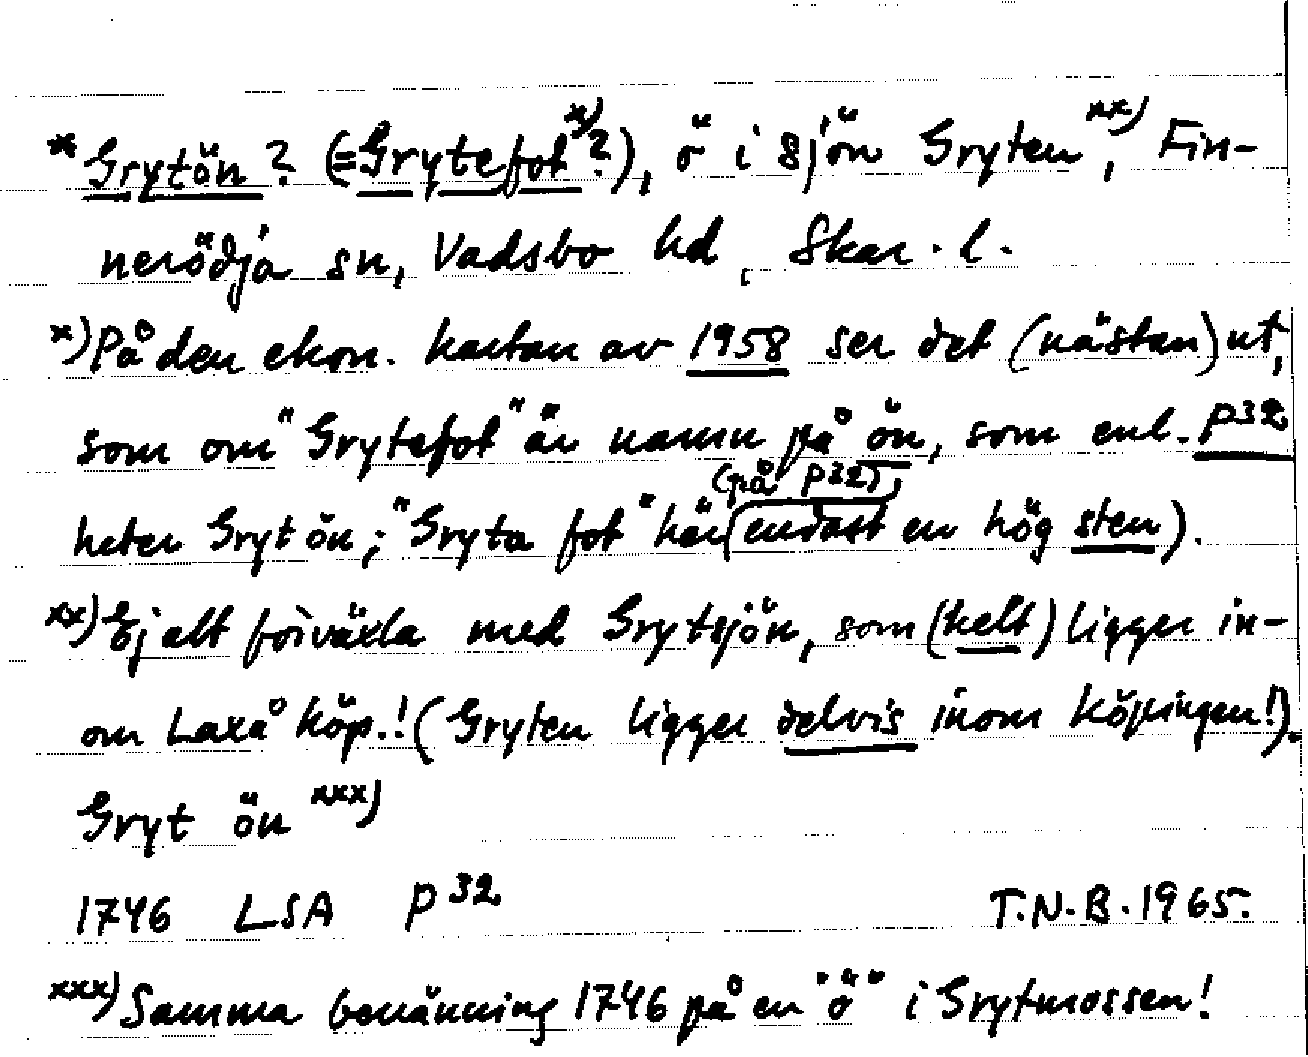 * Grytön? (=Grytefot x)?), ö i sjön Gryten xx), Fin-
nerödja sn, Vadsbo hd, Skar. l.
x) På den ekon. kartan av 1958 ser det (nästan) ut,
som om "Grytefot" är namn på ön, som enl. P32
heter Gryt ön; "Gryta fot" här (endast en hög sten).
(på P32),
xx) Ej att förväxla med Grytsjön, som (helt) ligger in-
om Laxå köp.! (Gryten ligger delvis inom köpingen!).
Gryt ön xxx)
1746 LSA P32 T.N.B. 1965.
xxx) Samma benämning 1746 på en "ö" i Grytmossen!